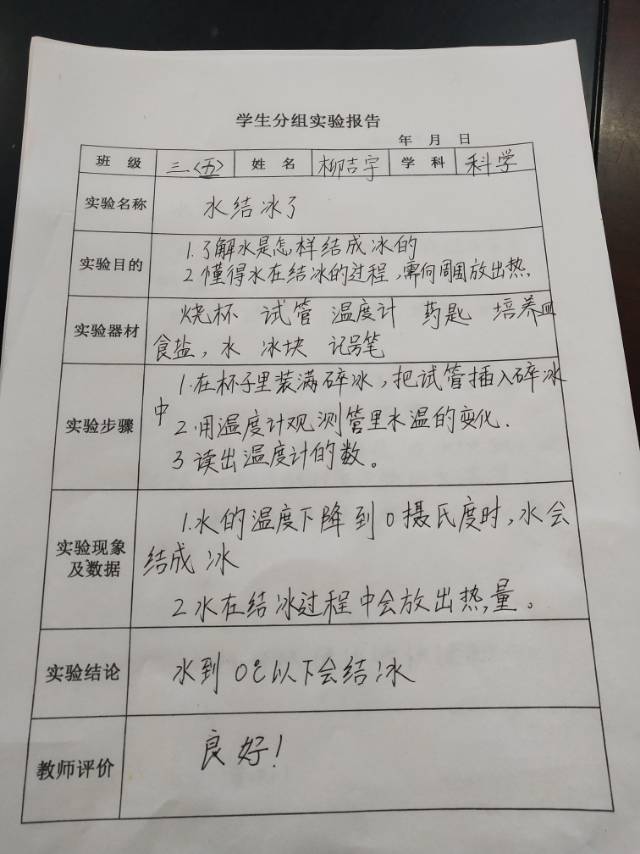 学生分组实验报告
年 月 日
班 级 三〈五〉 姓 名 柳吉宇 学 科 科学
实验名称 水结冰了
实验目的 1.了解水是怎样结成冰的
2 懂得水在结冰的过程,需向周围放出热.
实验器材 烧杯 试管 温度计 药匙 培养皿
食盐, 水 冰块 记号笔
实验步骤 1.在杯子里装满碎冰,把试管插入碎冰
中
2.用温度计观测管里水温的变化.
3 读出温度计的数。
实验现象及数据 1.水的温度下降到0摄氏度时,水会
结成冰
2 水在结冰过程中会放出热量。
实验结论 水到0℃以下会结冰
教师评价 良好!